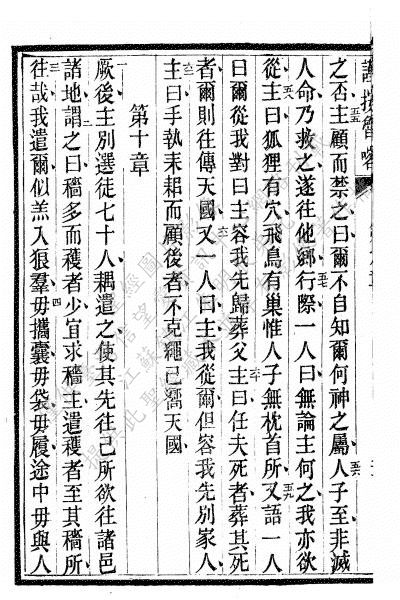 之否主顧而禁之曰爾不自知爾何神之屬人子至非滅
人命乃救之遂往他鄉行際一人曰無論主何之我亦欲
從主曰狐狸有穴飛鳥有巢惟人子無枕首所又語一人
曰爾從我對曰主容我先歸葬父主曰任夫死者葬其死
者爾則往傳天國又一人曰主我從爾但容我先別家人
主曰手執耒耜而顧後者不克繩己喬天國
第十章
厥後主別選徒七十人耦遣之使其先往己所欲往諸邑
諸地謂之曰穡多而穫者少宜求穡主遣穫者至其穡所
往哉我遣爾似羔入狼羣毋攜囊毋袋毋履途中毋與人